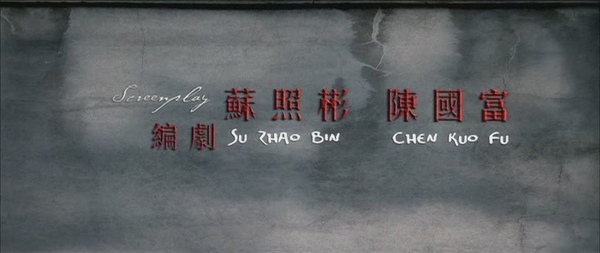 Screenplay 蘇照彬 陳國富
編劇 SU ZHAO BIN CHEN KUO FU